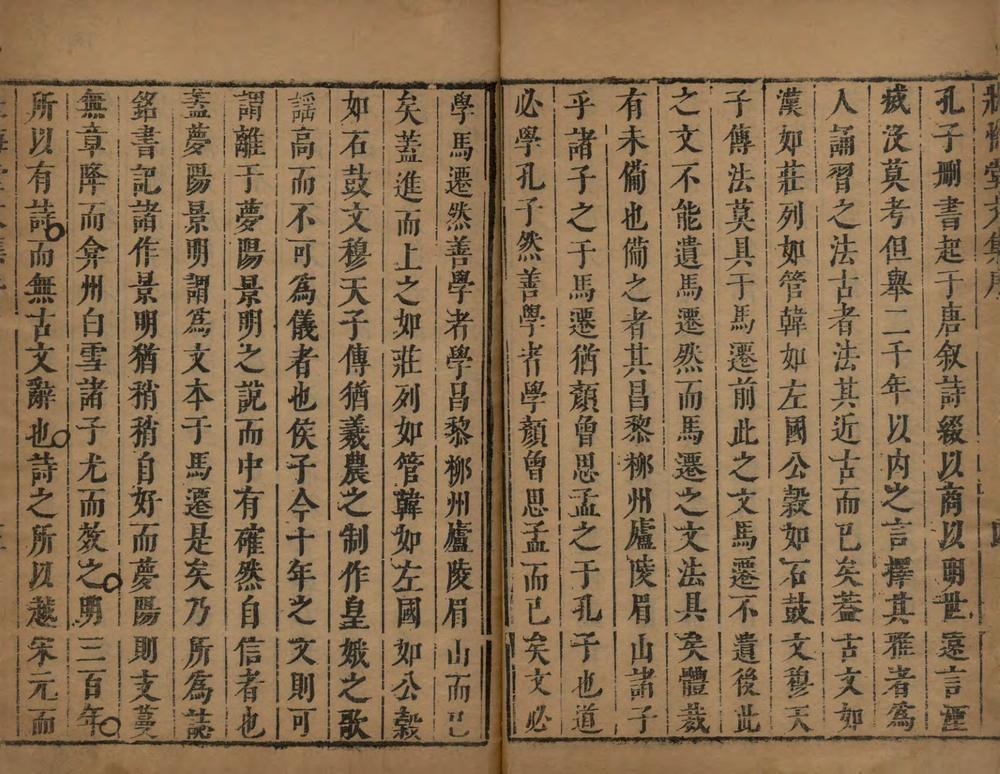 壯悔堂文集序
孔子刪書起于唐叙詩綴以商以明世遠言湮
滅沒莫考但舉二千年以內之言擇其雅者為
人誦習之法古者法其近古而已矣葢古文如
漢如莊列如管韓如左國公穀如石鼓文穆天
子傳法莫具于馬遷前此之文馬遷不遺後此
之文不能遺馬遷然而馬遷之文法具矣體裁
有未備也備之者其昌黎柳州廬陵眉山諸子
乎諸子之于馬遷猶顏曾思孟之于孔子也道
必學孔子然善學者學顏曾思孟而已矣文必
學馬遷然善學者學昌黎柳州廬陵眉山而已
矣葢進而上之如莊列如管韓如左國如公穀
如石鼓文穆天子傳猶羲農之制作皇娥之歌
謡高而不可為儀者也侯子今十年之文則可
謂離于夢陽景明之說而中有確然自信者也
葢夢陽景明謂為文本于馬遷是矣乃所為誌
銘書記諸作景明猶稍稍自好而夢陽則支蔓
無章降而弇州白雪諸子尤而效之明三百年
所以有詩而無古文辭也詩之所以越宋元而